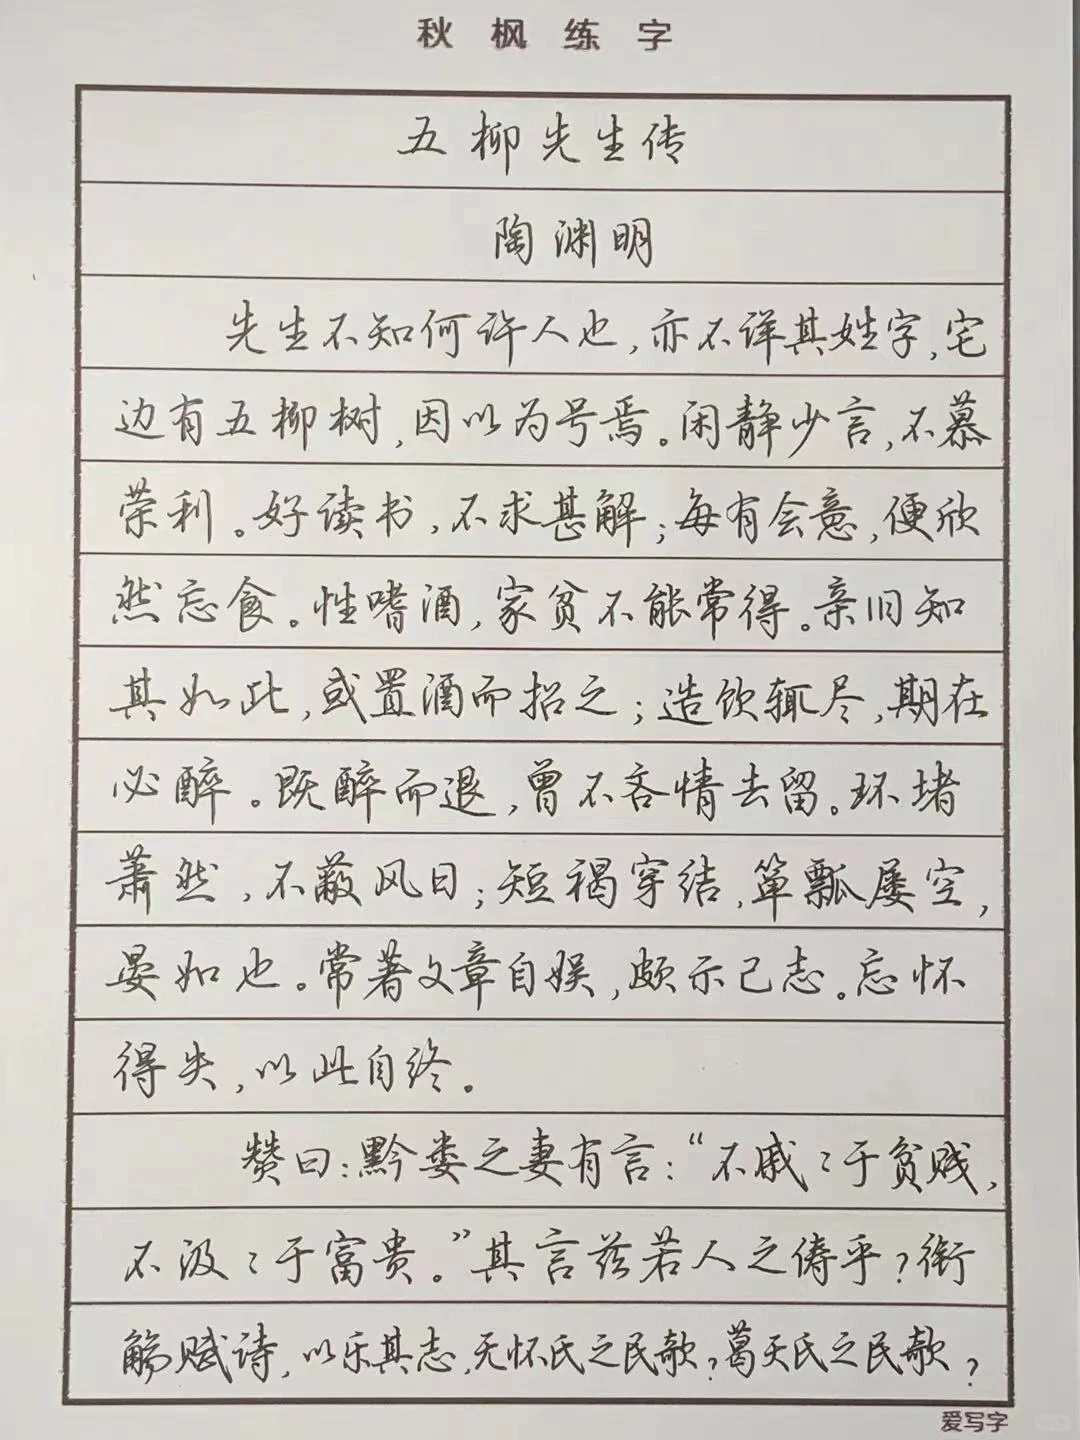 秋枫练字
五柳先生传
陶渊明
先生不知何许人也,亦不详其姓字,宅
边有五柳树,因以为号焉。闲静少言,不慕
荣利。好读书,不求甚解;每有会意,便欣
然忘食。性嗜酒,家贫不能常得。亲旧知
其如此,或置酒而招之;造饮辄尽,期在
必醉。既醉而退,曾不吝情去留。环堵
萧然,不蔽风日;短褐穿结,箪瓢屡空,
晏如也。常著文章自娱,颇示己志。忘怀
得失,以此自终。
赞曰:黔娄之妻有言:“不戚〻于贫贱,
不汲〻于富贵。”其言兹若人之俦乎?衔
觞赋诗,以乐其志,无怀氏之民欤?葛天氏之民欤?
爱写字